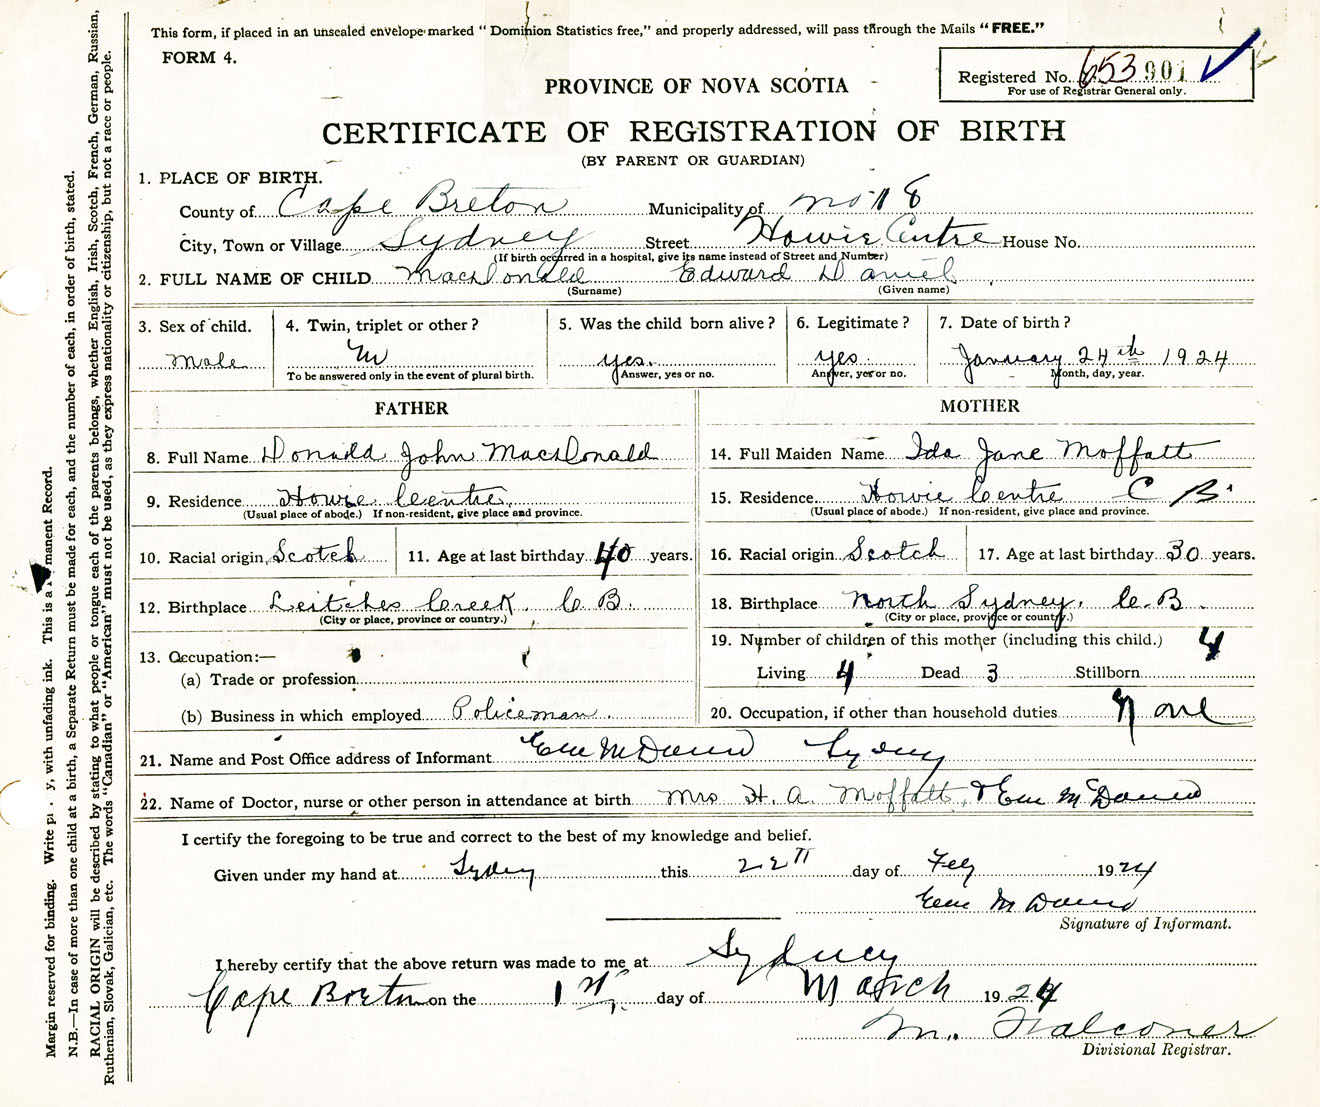 This form, if placed in an unsealed envelope marked "Dominion Statistics free," and properly addressed, will pass through the Mails "FREE."
FORM 4.
Registered No. 653901
For use of Registrar General only.
PROVINCE OF NOVA SCOTIA
CERTIFICATE OF REGISTRATION OF BIRTH
(BY PARENT OR GUARDIAN)
1. PLACE OF BIRTH.
County of Cape Breton Municipality of No 18
City, Town or Village Sydney Street Howie Centre House No.
(If birth occurred in a hospital, give its name instead of Street and Number)
2. FULL NAME OF CHILD MacDonald Edward Daniel
(Surname) (Given name)
3. Sex of child. 4. Twin, triplet or other? 5. Was the child born alive? 6. Legitimate? 7. Date of birth?
Male yes. yes. January 24th 1924
To be answered only in the event of plural birth. Answer, yes or no. Answer, yes or no. Month, day, year.
FATHER MOTHER
8. Full Name Donald John MacDonald 14. Full Maiden Name Ida Jane Moffatt
9. Residence Howie Centre. 15. Residence. Howie Centre C B.
(Usual place of abode.) If non-resident, give place and province. (Usual place of abode.) If non-resident, give place and province.
10. Racial origin Scotch 11. Age at last birthday 40 years. 16. Racial origin Scotch 17. Age at last birthday 30 years.
12. Birthplace Leitches Creek. C B. 18. Birthplace North Sydney. C. B.
(City or place, province or country.) (City or place, province or country.)
19. Number of children of this mother (including this child.) 4
13. Occupation:—
Living 4 Dead 3 Stillborn
(a) Trade or profession
(b) Business in which employed Policeman. 20. Occupation, if other than household duties None
21. Name and Post Office address of Informant Sydney
22. Name of Doctor, nurse or other person in attendance at birth Mrs H. A. Moffatt,
I certify the foregoing to be true and correct to the best of my knowledge and belief.
Given under my hand at Sydney this 22 day of Feby 1924
Signature of Informant.
I hereby certify that the above return was made to me at Sydney
Cape Breton on the 1st day of March 1924
M. Falconer
Divisional Registrar.
Margin reserved for binding. Write , with unfading ink. This is a manent Record.
N.B.—In case of more than one child at a birth, a Separate Return must be made for each, and the number of each, in order of birth, stated.
RACIAL ORIGIN will be described by stating to what people or tongue each of the parents belongs, whether English, Irish, Scotch, French, German, Russian,
Ruthenian, Slovak, Galician, etc. The words "Canadian" or "American" must not be used, as they express nationality or citizenship, but not a race or people.